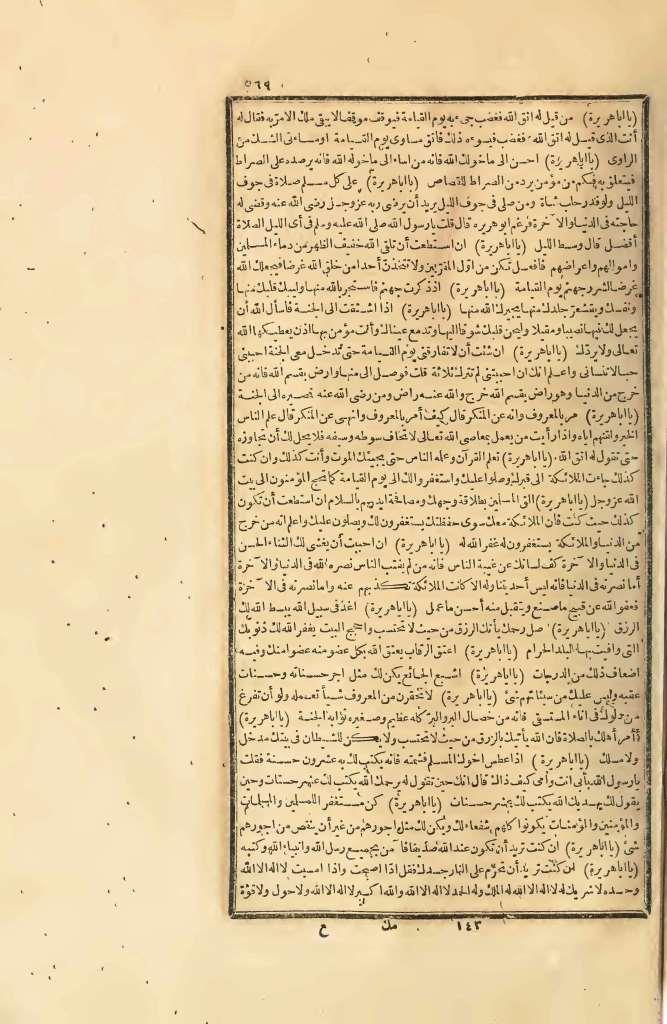 ٥٦٩
(يا اباهريرة) من قيل له اتق الله فغضب جىء به يوم القيامة فيوقف موقفا لا يبقى ملك الامر به فقال له
أنت الذى قيل له اتق الله فغضب فيسوءه ذلك فاتق مساوى يوم القيامة اومساءتى الشك من
الراوى (يا اباهريرة) احسن الى ماخولك الله فانه من اساء الى ماخوله الله فانه يرصده على الصراط
فيتعلق به فكم من مؤمن يرد من الصراط للقصاص (يا اباهريرة) على كل مسلم صلاة فى جوف
الليل ولو قدر حلب شاة ومن صلى فى جوف الليل يريد أن يرضى ربه عزوجل رضى الله عنه وقضى له
حاجته فى الدنيا والآخرة فزعم ابوهريرة قال قلت يارسول الله صلى الله عليه وسلم فى أى الليل الصلاة
أفضل قال وسط الليل (يا اباهريرة) ان استطعت أن تلقى الله خفيف الظهر من دماء المسلمين
واموالهم واعراضهم فافعل تكن من اول المقربين ولا تتخذن أحدا من خلق الله غرضا فيجعلك الله
غرضا لشرر جهنم يوم القيامة (يا اباهريرة) اذا ذكرت جهنم فاستجر بالله منها وليبك قلبك منها
ونفسك ويقشعر جلدك منها يجيرك الله منها (يا اباهريرة) اذا اشتقت الى الجنة فاسأل الله أن
يجعل لك فيها نصيبا ومقيلا وليحن قلبك شوقا اليها وتدمع عيناك وأنت مؤمن بها اذن يعطيكها الله
تعالى ولا يردك (يا اباهريرة) ان شئت أن لا تفارقنى يوم القيامة حتى تدخل معى الجنة احببنى
حبا لا تنسانى واعلم انك ان احببتنى لم تترك ثلاثة قلت فوصل الى منها وارض بقسم الله فانه من
خرج من الدنيا وهو راض بقسم الله خرج والله عنه راض ومن رضى الله عنه مصيره الى الجنة
(يا اباهريرة) مر بالمعروف وانه عن المنكر قال كيف آمر بالمعروف وانهى عن المنكر قال علم الناس
الخير ولقنهم اياه واذا رأيت من يعمل بمعاصى الله تعالى لا تخاف سوطه وسيفه فلا يحل لك أن تجاوزه
حتى تقول له اتق الله (يا اباهريرة) تعلم القرآن وعلمه الناس حتى يجيئك الموت وأنت كذلك وان كنت
كذلك جاءت الملائكة الى قبرك وصلوا عليك واستغفروا لك الى يوم القيامة كما تحج المؤمنون الى بيت
الله عزوجل (يا اباهريرة) الق المسلمين بطلاقة وجهك ومصافحة ايديهم بالسلام ان استطعت أن تكون
كذلك حيث كنت فان الملائكة معك سوى حفظتك يستغفرون لك ويصلون عليك واعلم انه من خرج
من الدنيا والملائكة يستغفرون له غفر الله له (يا اباهريرة) ان احببت أن يغشى لك الثناء الحسن
فى الدنيا والآخرة كف لسانك عن غيبة الناس فانه من لم يغتب الناس نصره الله فى الدنيا والآخرة
أما نصرته فى الدنيا فانه ليس أحد يتناوله الا كانت الملائكة تكذبهم عنه واما نصرته فى الآخرة
فعفو الله عن قبيح ما صنع ويتقبل منه أحسن ما عمل (يا اباهريرة) اغد فى سبيل الله يبسط الله لك
الرزق (يا اباهريرة) صل رحمك يأتك الرزق من حيث لا تحتسب واحجج البيت يغفر الله لك ذنوبك
التى وافيت بها البلد الحرام (يا اباهريرة) اعتق الرقاب يعتق الله بكل عضو منه عضوا منك وفيه
اضعاف ذلك من الدرجات (يا اباهريرة) اشبع الجائع يكن لك مثل اجر حسناته وحسنات
عقبه وليس عليك من سيئاتهم شئ (يا اباهريرة) لا تحقرن من المعروف شيأ تعمله ولو أن تفرغ
من دلوك فى اناء المستسقى فانه من خصال البر والبر كله عظيم وصغيره ثوابه الجنة (يا اباهريرة)
أأمر أهلك بالصلاة فان الله يأتيك بالرزق من حيث لا تحتسب ولا يكن للشيطان فى بيتك مدخل
ولا مسلك (يا اباهريرة) اذا عطس اخوك المسلم فشمته فانه يكتب لك به عشرون حسنة فقلت
يارسول الله بأبى انت وأمى كيف ذاك قال انك حين تقول له يرحمك الله يكتب لك عشر حسنات وحين
يقول لك يهديك الله يكتب لك عشر حسنات (يا اباهريرة) كن مستغفرا للمسلمين والمسلمات
والمؤمنين والمؤمنات يكونوا كلهم شفعاء لك ويكن لك مثل اجورهم من غير أن ينقص من اجورهم
شئ (يا اباهريرة) ان كنت تريد أن تكون عند الله صديقا فآمن بجميع رسل الله وانبياء الله وكتبه
(يا اباهريرة) ان كنت تريد أن تحرم على النار جسدك فقل اذا اصبحت واذا امسيت لا اله الا الله
وحده لا شريك له لا اله الا الله له الملك وله الحمد لا اله الا الله والله اكبر لا اله الا الله ولا حول ولا قوة
١٤٣ مك ع